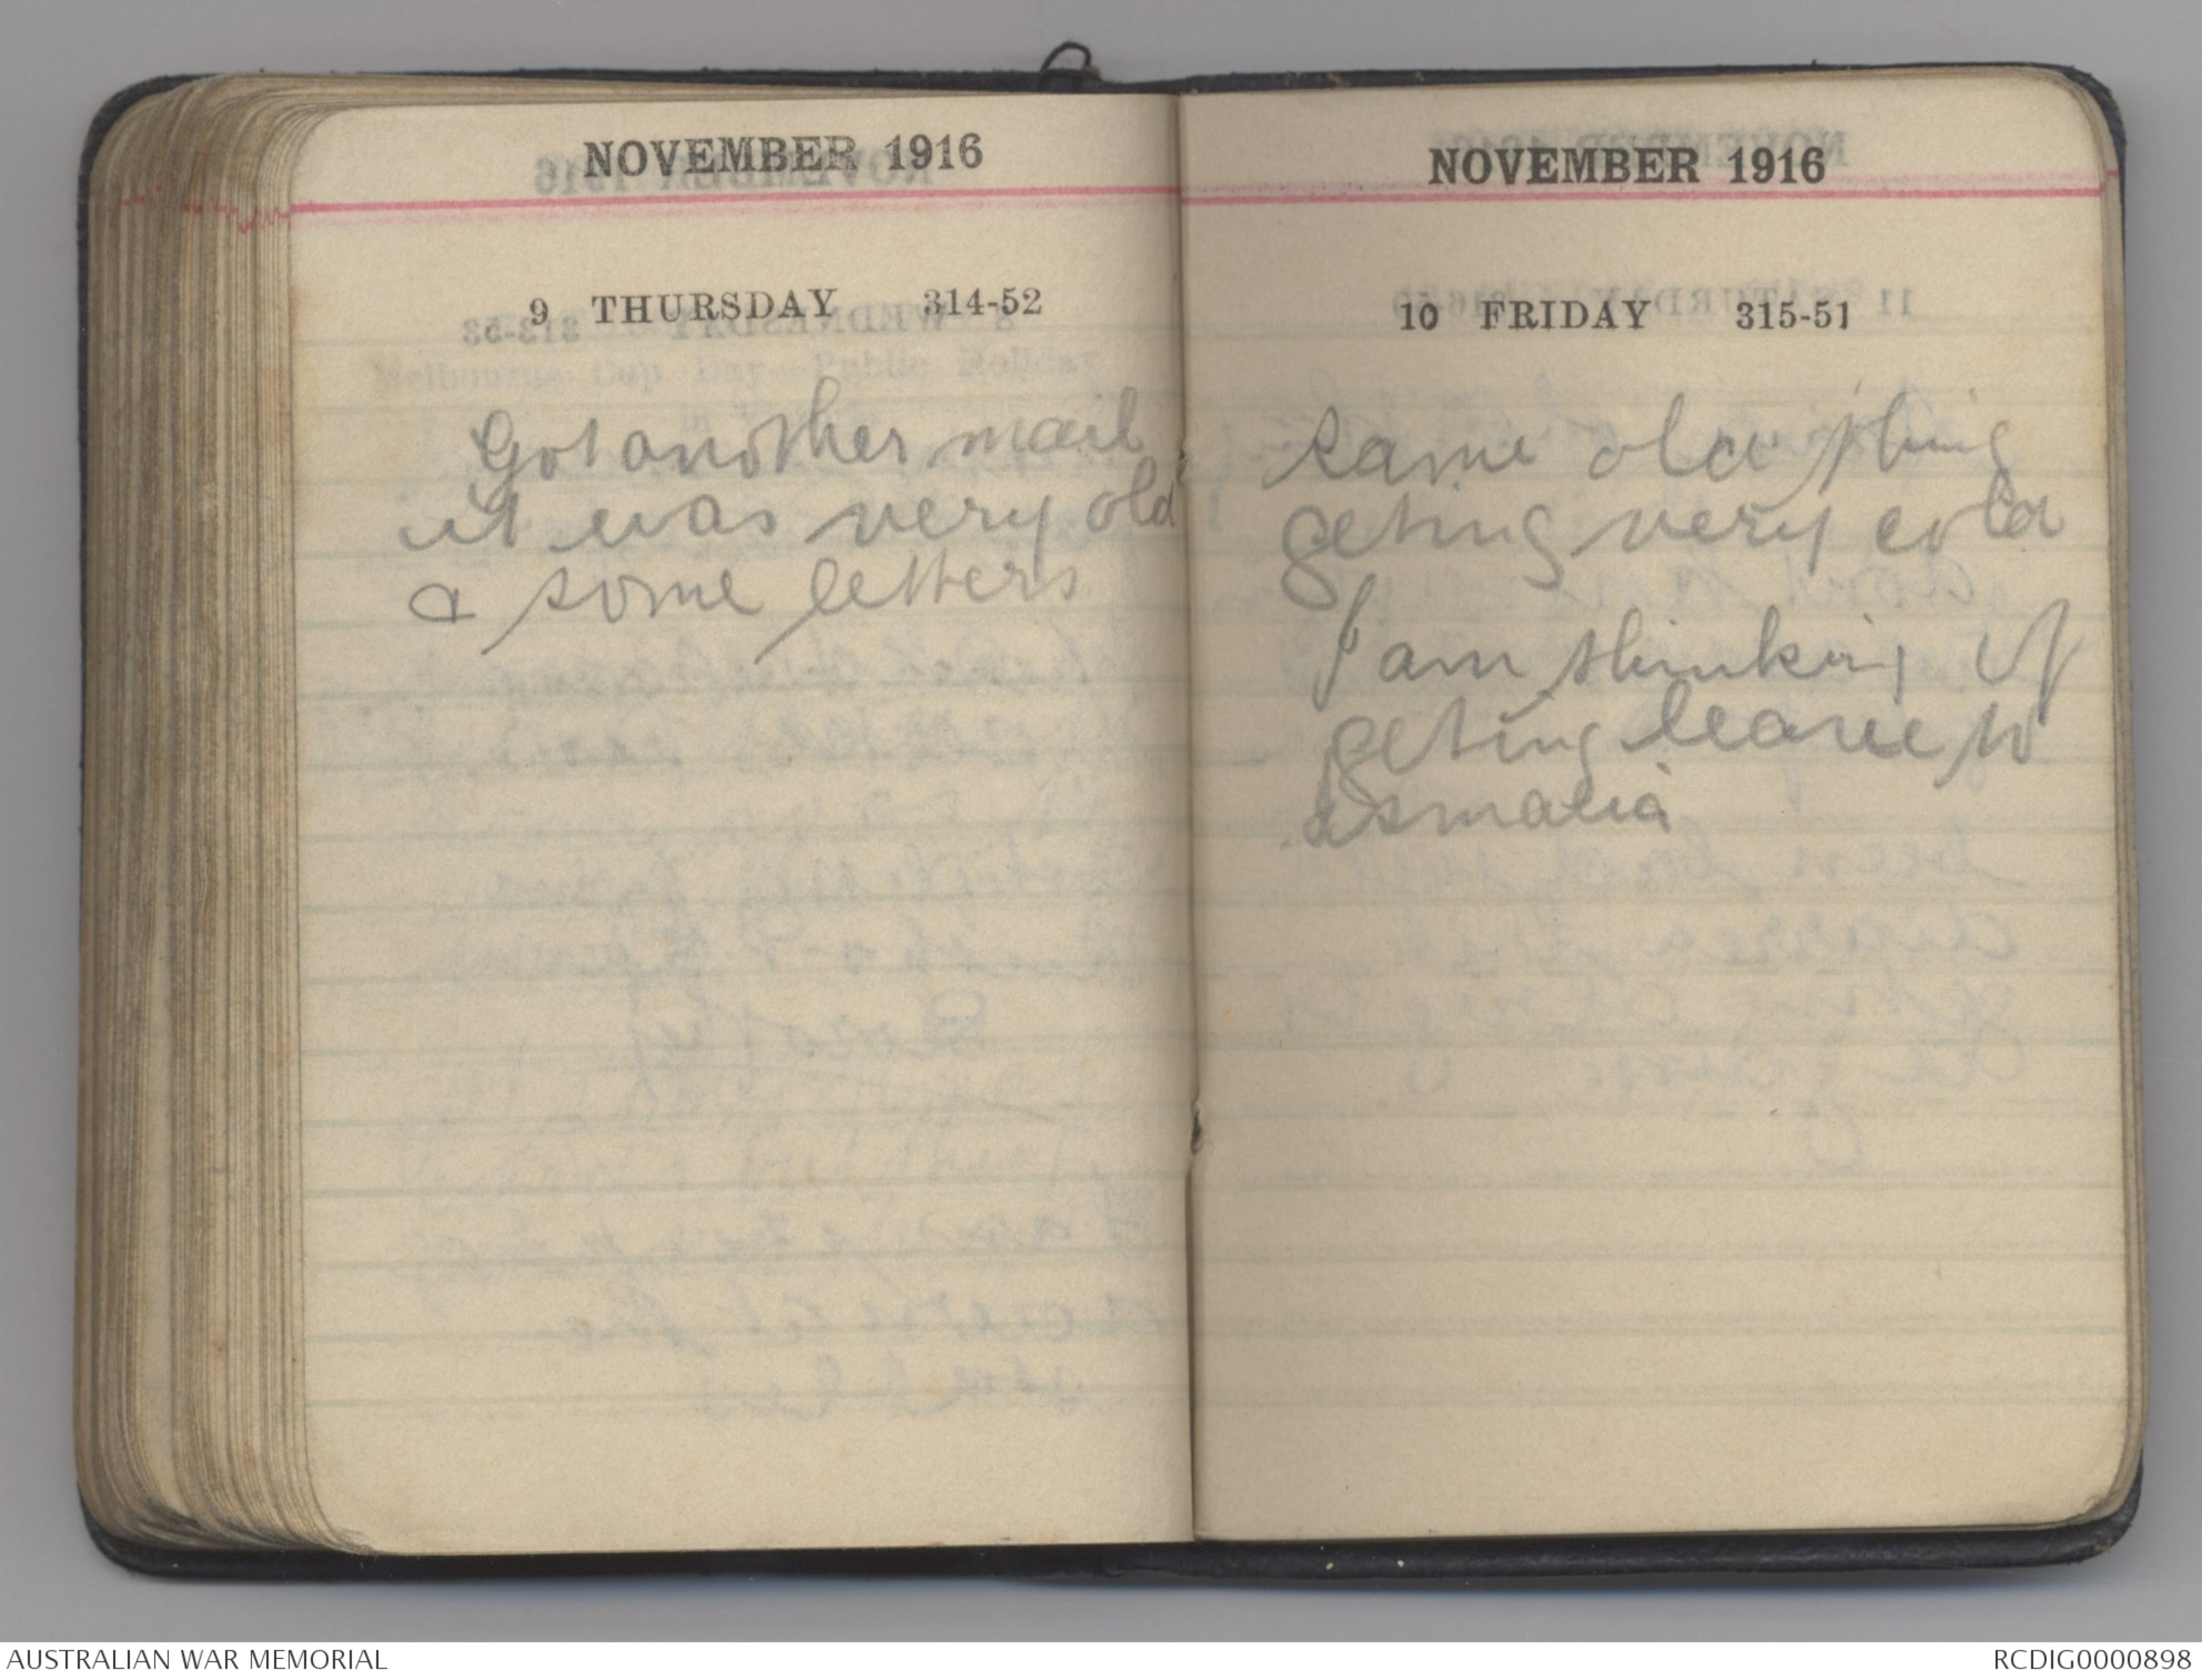 NOVEMBER 1916
9 THURSDAY 314-52
Got another mail
it was very old
& some letters
NOVEMBER 1916
10 FRIDAY 315-51
same old thing
geting very cold
I am thinking of
geting leave to
Ismalia
AUSTRALIAN WAR MEMORIAL
RCDIG0000898